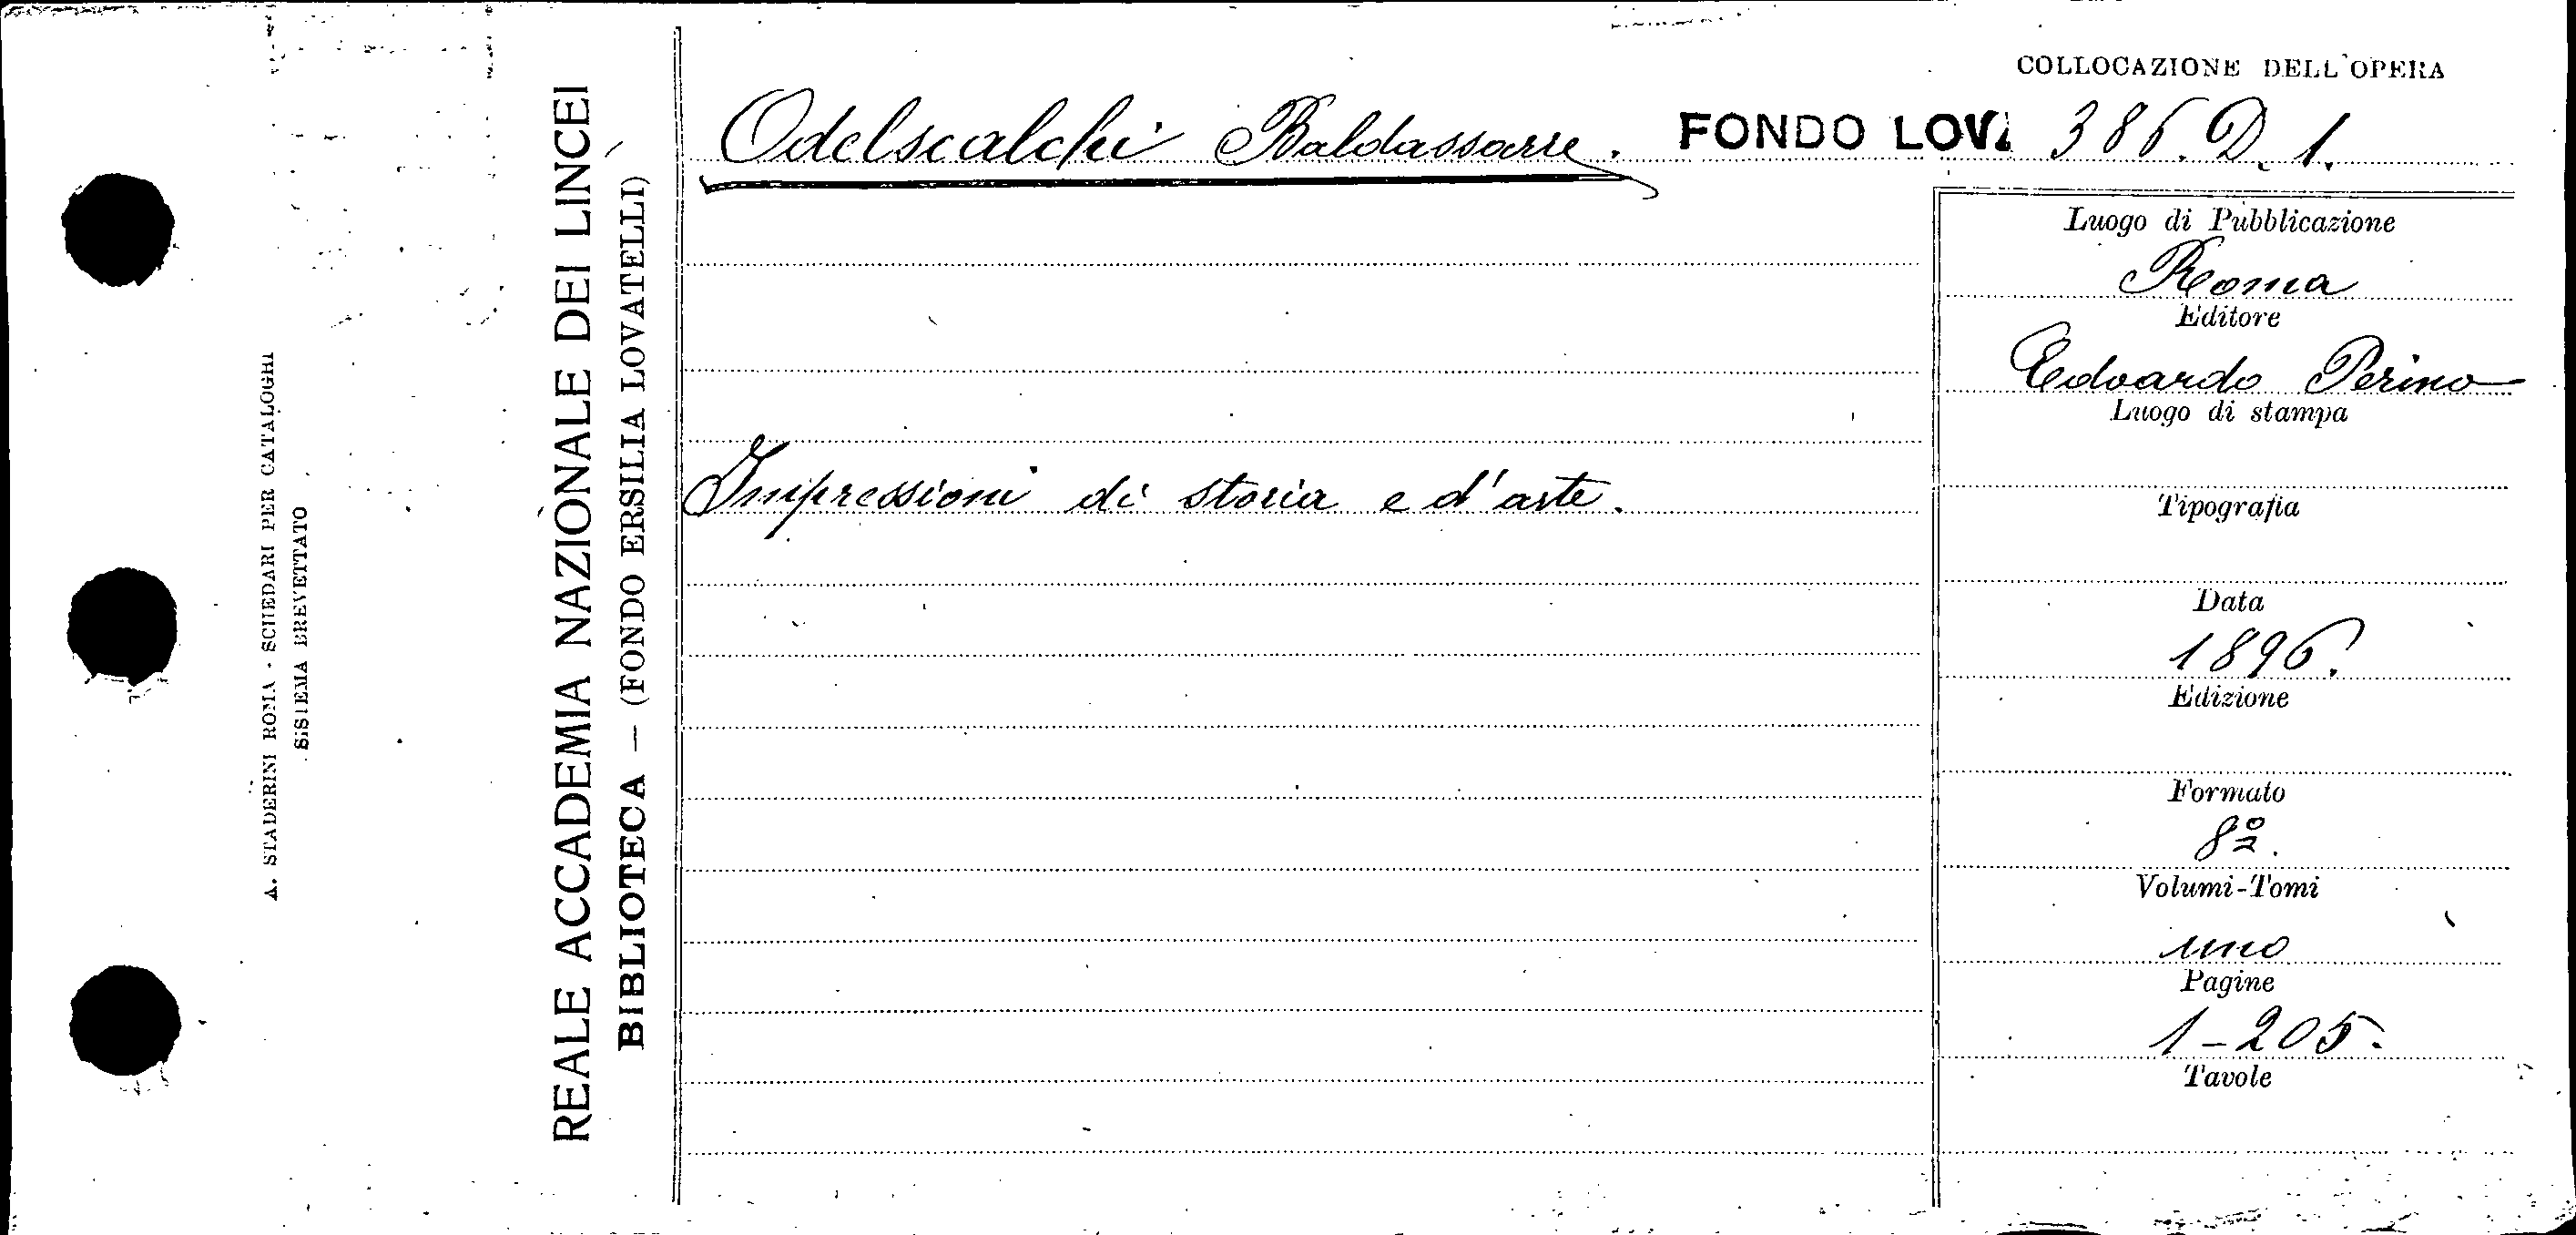 COLLOCAZIONE DELL'OPERA
Odelscalchi Baldassarre. FONDO LOVA 386. D. 1.
Luogo di Pubblicazione
Roma
Editore
Edoardo Perino
Luogo di stampa
Impressioni di storia e d'arte.
Tipografia
Data
1896.
Edizione
Formato
8º.
Volumi-Tomi
uno
Pagine
1-205.
Tavole
REALE ACCADEMIA NAZIONALE DEI LINCEI
BIBLIOTECA — (FONDO ERSILIA LOVATELLI)
A. STADERINI ROMA - SCHEDARI PER CATALOGHI
SISTEMA BREVETTATO